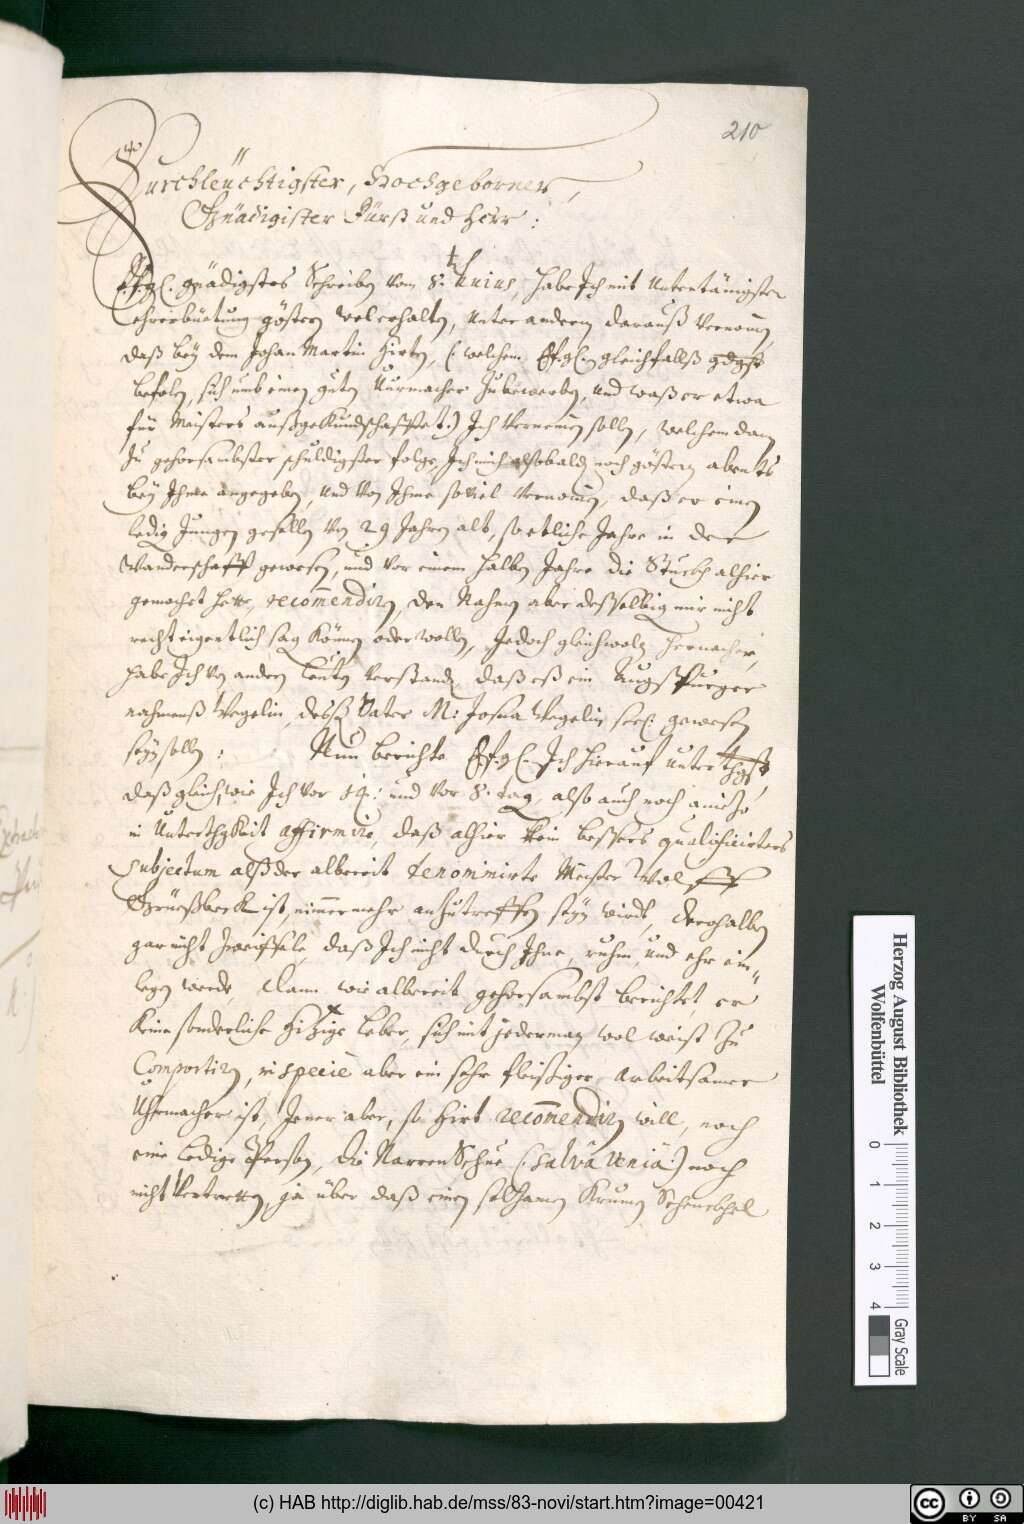 210
Durchleüchtigster, Hochgeborner,
Gnädigister Fürst und Herr:
E. F. G. gnädigstes Schreiben vom 8. Junius, habe Ich mit Untertänigster
ehrerbüetung gösteren wol erhalten, Unter anderen darauß vernomen,
daß beÿ dem Johan Martin Hirten, (: welchem E F G. gleichfallß gdgst
befolen, sich umb einen guten Uürmacher zu bewerben, und waß er etwa
für Meisters außgekundschafftet:) Ich vernemen sollen, welchem dan
zu gehorsambster schuldigster folge, Ich mich alsobalden noch gösteren abents
beÿ Ihme angegeben, und von Ihme soviel vernomen, daß er einen
ledig Jungen gesellen von 29 Jahren alt, so etliche Jahre in der
Wanderschafft gewesen, und vor einem halben Jahre die Stuckh alhier
gemachet hette, recommendiren, den Nahmen aber desselbig mir nicht
recht eigentlich sagen können oder wollen, Jedoch gleichwoln hernacher,
habe Ich von anderen leuten verstanden daß eß ein Augspurger
nahmenß Wegelin, dessen Vater M: Josua Wegelin seel. gewesen
seÿn sollen: Nun berichte E F G. Ich hierauf unterthgst,
daß gleich, wie Ich vor 14: und vor 8. tagen, also auch noch aniezo
in Unterthgkeit affirmire, daß alhier kein bessers qualificirters
Subjectum alß der albereit denominirte Meister Wolff
Grüeßbeck ist, nimmermehr anzutreffen seÿn wirdt, derohalben
gar nicht zweiffele, daß Ich nicht durch Ihne, ruhm, und ehr ein-
legen werde, Dann wie albereit gehorsambst berichtet, er
keine sonderliche hizige leber, sich mit jederman wol weist zu
Comportiren, in specie aber ein sehr fleissiger, arbeitsamer
Uhrmacher ist, Jener aber, so Hirt recommendiren will, noch
eine ledige Person, die NarrenSchue (: salvâ veniâ:) noch
nicht vertretten, ja über daß einen selzamen krumen Schenckhel
(c) HAB http://diglib.hab.de/mss/83-novi/start.htm?image=00421
Herzog August Bibliothek
Wolfenbüttel
0 1 2 3 4
Gray Scale
cc BY SA